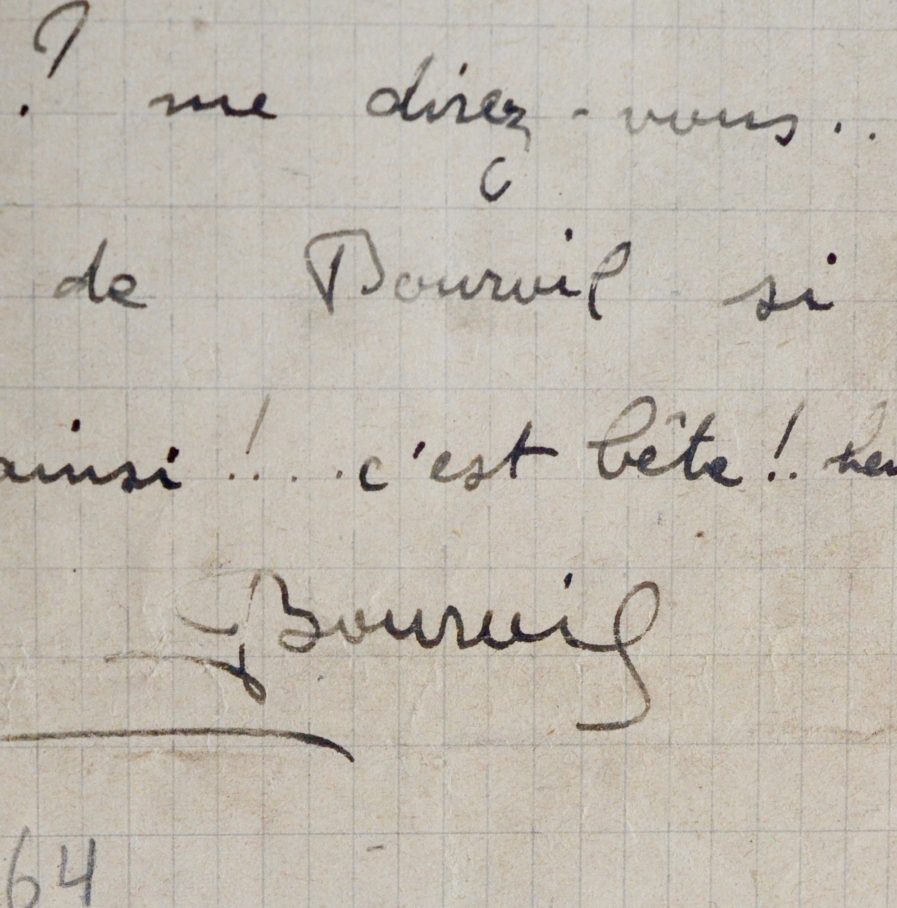 ? me direz-vous..
de Bourvil si
ainsi !.... c'est bête !.
Bourvil
64